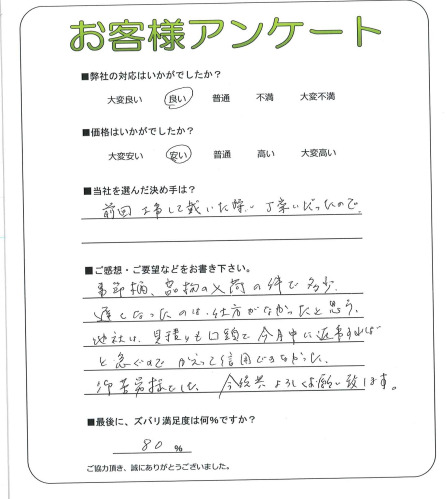 お客様アンケート
■弊社の対応はいかがでしたか？
大変良い 良い 普通 不満 大変不満
■価格はいかがでしたか？
大変安い 安い 普通 高い 大変高い
■当社を選んだ決め手は？
前回工事して戴いた際、丁寧だったので。
■ご感想・ご要望などをお書き下さい。
季節柄、品物の入荷の件で多少、
遅くなったのは、仕方がなかったと思う。
他社は、見積りも口頭で今月中に返事すれば
と急ぐので かえって信用できなかった。
御苦労様でした。今後共よろしくお願い致します。
■最後に、ズバリ満足度は何%ですか？
80 %
ご協力頂き、誠にありがとうございました。